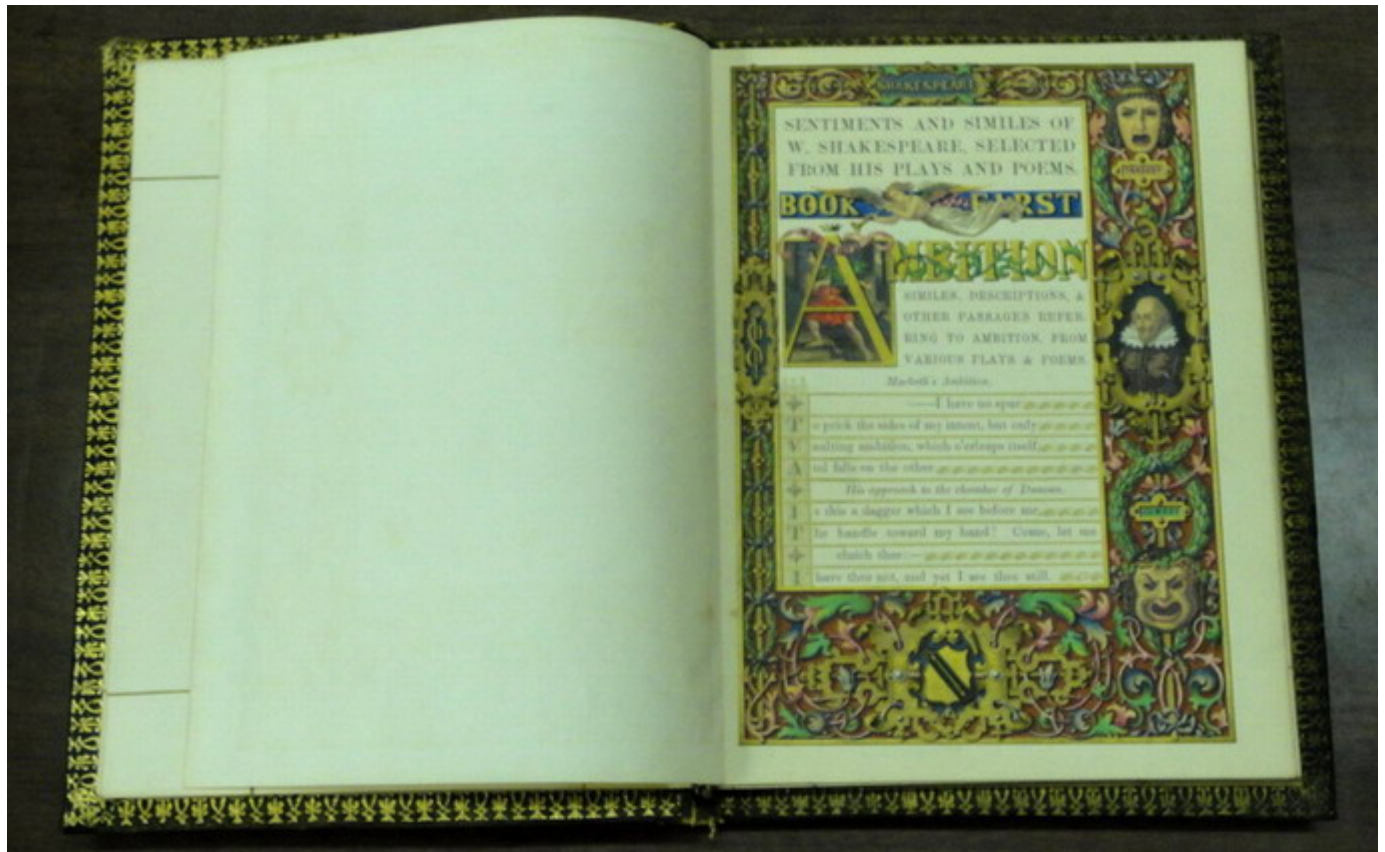 SHAKESPEARE
SENTIMENTS AND SIMILES OF
W. SHAKESPEARE, SELECTED
FROM HIS PLAYS AND POEMS.
TRAGEDY
BOOK FIRST
AMBITION
SIMILES, DESCRIPTIONS, &
OTHER PASSAGES REFER-
RING TO AMBITION, FROM
VARIOUS PLAYS & POEMS.
Macbeth's Ambition.
—I have no spur
To prick the sides of my intent, but only
Vaulting ambition, which o'erleaps itself,
And falls on the other
His approach to the chamber of Duncan.
Is this a dagger which I see before me,
The handle toward my hand? Come, let me
clutch thee:—
I have thee not, and yet I see thee still.
COMEDY